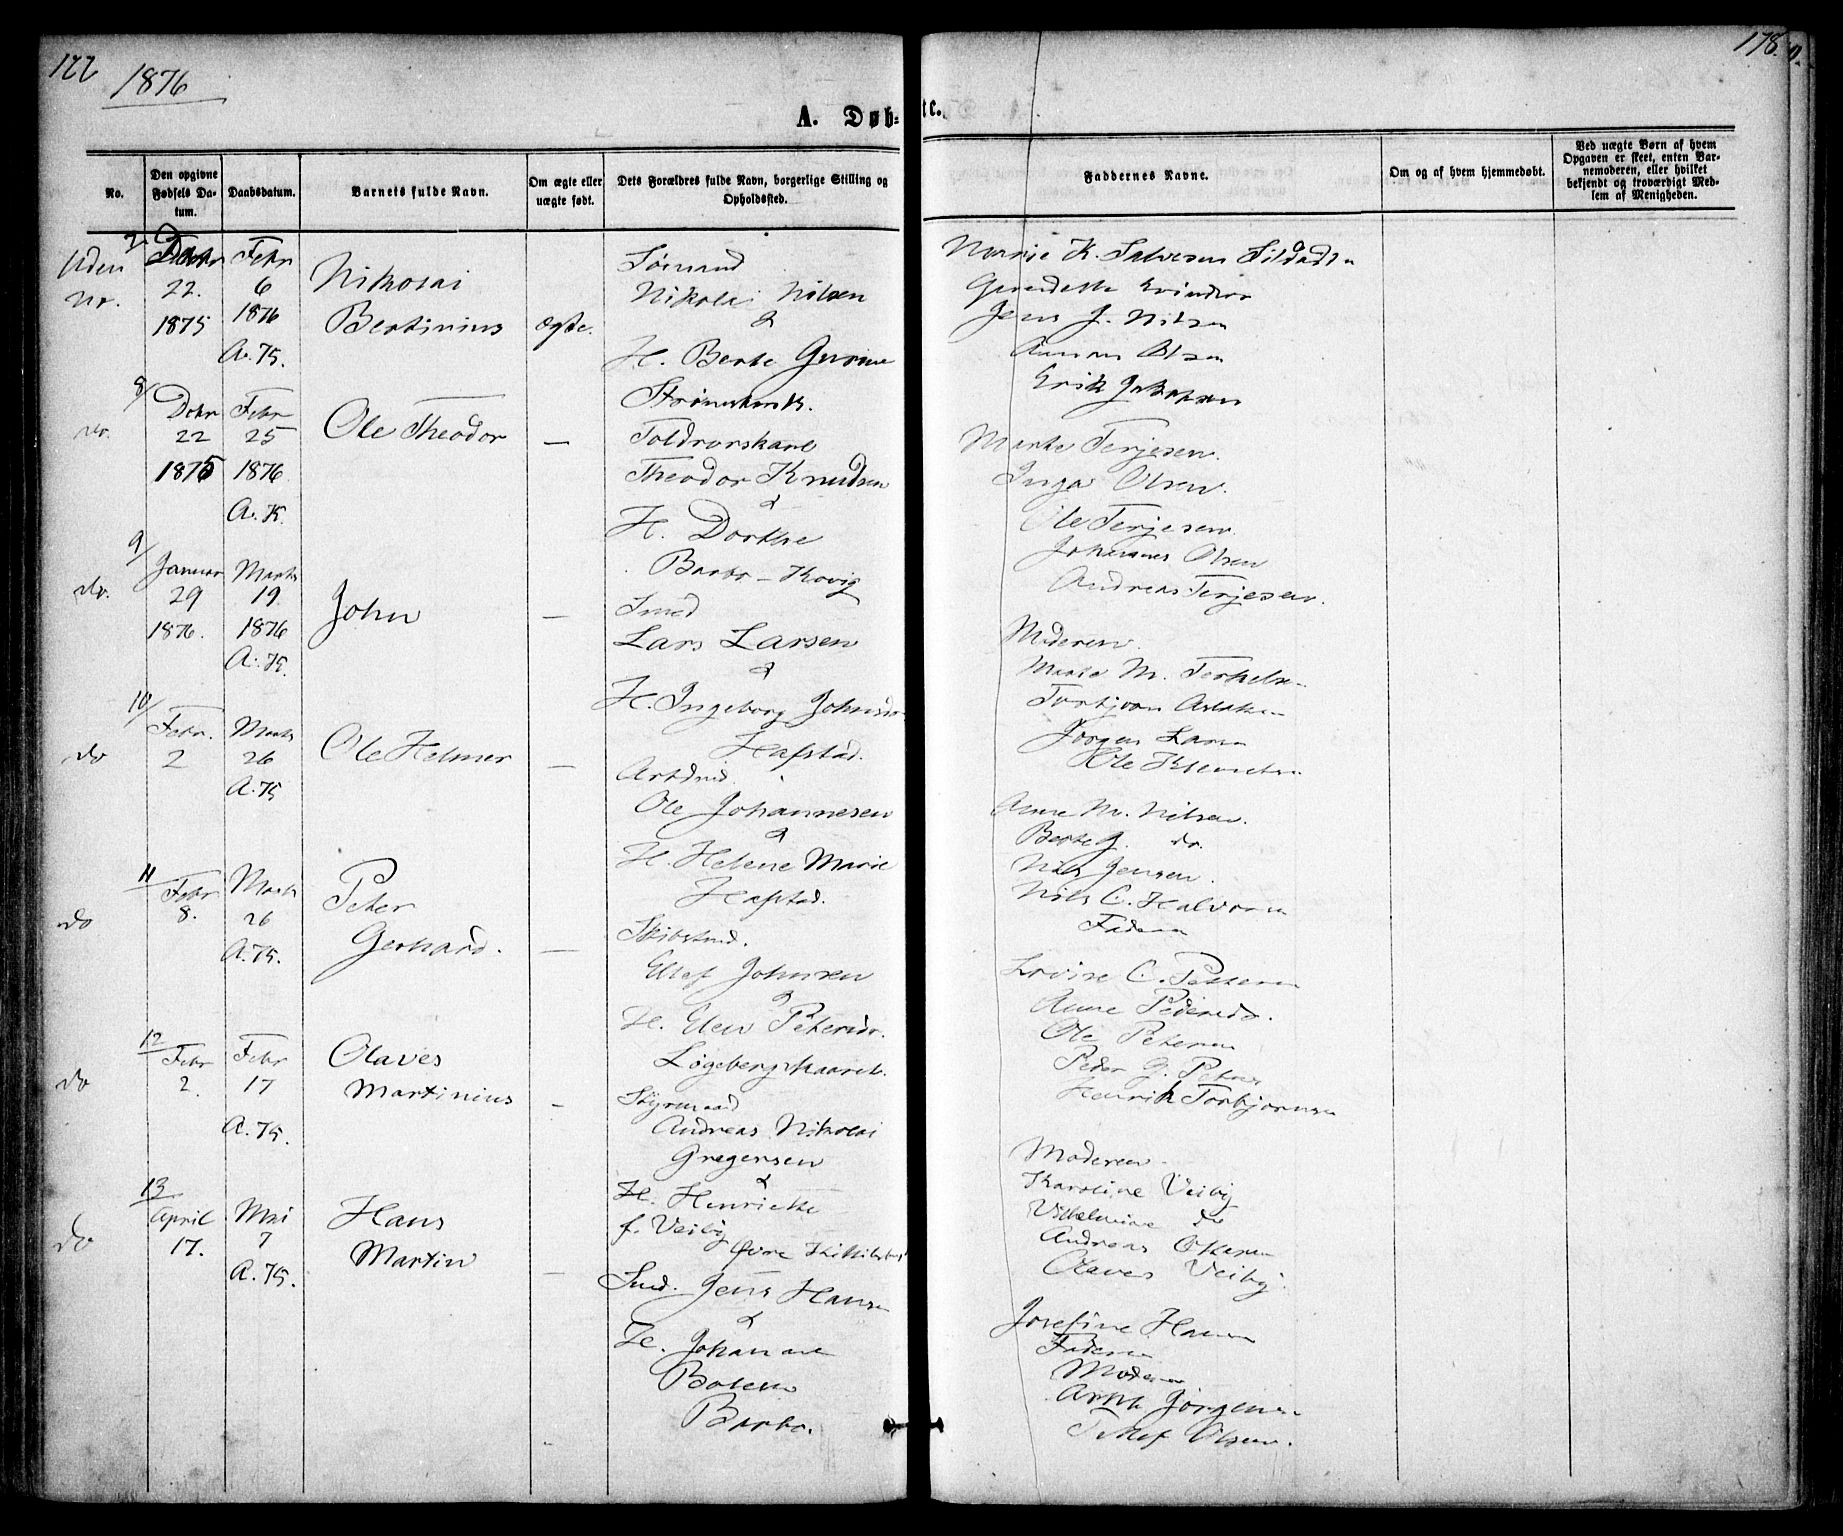 122
1876
178.
A. Døb-
te.
No.
Den opgivne Fødsels Da-
tum.
Daabsdatum.
Barnets fulde Navn.
Om ægte eller
uægte født.
Dets Forældres fulde Navn, borgerlige Stilling og
Opholdssted.
Faddernes Navne.
Om og af hvem hjemmedøbt.
Ved uægte Børn af hvem
Opgaven er skeet, enten Bar-
nemoderen, eller hvilket
bekjendt og troværdigt Med-
lem af Menigheden.
Uden
Nr.
22.
1875
Febr
6
1876
A. 75.
Nikolai
Bertinius
ægte.
Sømand
Nikolai Nilsen
&
H. Berte Gurine
Marie K. Salvesen
Jens J. Nilsen
Olsen
Erik Jakobsen
8/
do.
Dcbr
22
1875
Febr
25
1876
Ole Theodor
—
Toldrorskarl
Theodor Knudsen
&
H. Dorthe
Barbo - Kovig
Marte Terjesen.
Inga Olsen.
Ole Terjesen
Johannes Olsen
Andreas Terjesen.
9/
do.
Januar
29
1876.
Marts
19
1876
A. 75.
John
—
Smed
Lars Larsen
&
H. Ingeborg Johnsdr
Hafstad.
Moderen
Marte M. Terkels
Torbjørn Aslaksen
Jørgen Larsen
Ole
10/
do
Febr.
2
Marts
26
A. 75
Ole Helmer
—
Arbdmd.
Ole Johannesen
&
H. Helene Marie
Hafstad.
Anne M. Nilsen.
Berte G. do.
Nils Jensen.
Nils C. Halvorsen
Faderen
11
do
Febr
8.
Marts
26
A. 75.
Peter
Gerhard.
—
Skibstmd.
Ellef Johnsen
&
H. Elen Petersdr.
Løgebergskaaret.
Lovise C. Petersen
Anne Pedersdr.
Ole Petersen
Peder G. Peters
Henrik Torbjørnsen
12
do
Febr
2.
Febr
17
A. 75.
Olaves
Martinius
—
Styrmand
Andreas Nikolai
Gregersen
&
H. Henriette
f. Veiby
Øvre
Moderen
Karoline Veiby
Vilhelmine do
Andreas
Olaves Veiby
13
do
April
17.
Mai
7
A. 75.
Hans
Martin
—
Smd. Jens Hansen
&
H. Johanne
Bolette
Barbo.
Josefine Hansen
Faderen
Moderen
Jørgensen
Tellef Olsen.